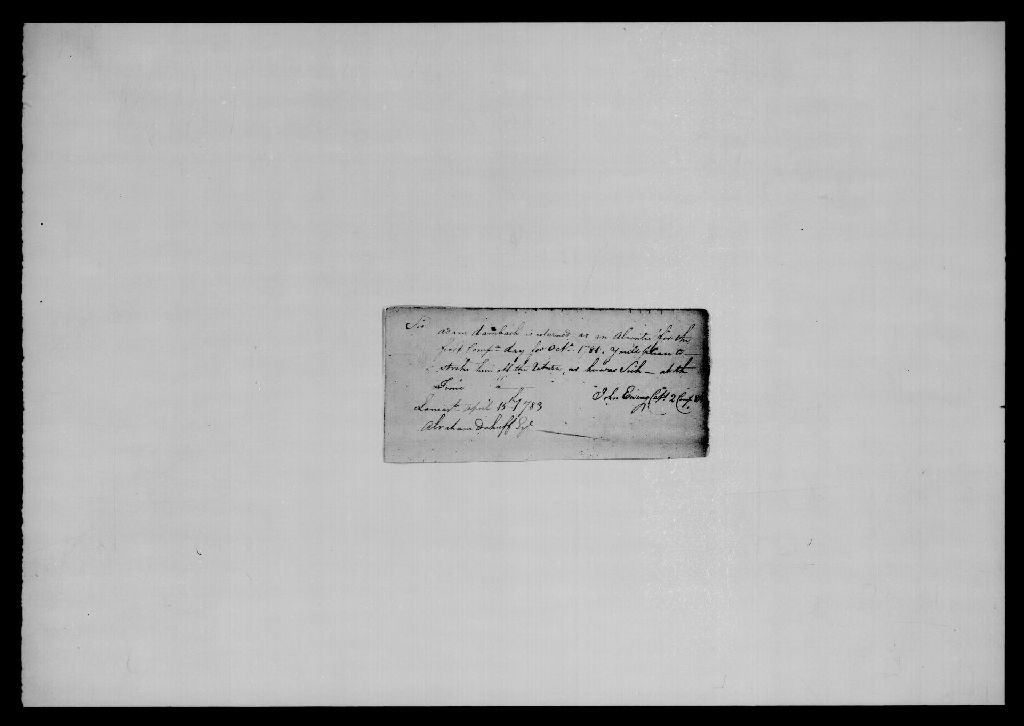 Sir
Adam Dambach is returned as an Absentee for the
first Comp.y day for Oct.r 1781. Youll please to
stroke him off the Return, as he was Sick — at th
Time
John Ewing Capt 2 Comp
Lancast.r April 15th 1783
Abraham Dehuff Esq.r